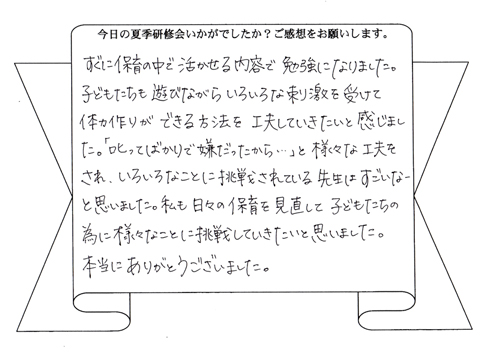 今日の夏季研修会いかがでしたか？ご感想をお願いします。
すぐに保育の中で活かせる内容で勉強になりました。
子どもたちも遊びながらいろいろな刺激を受けて
体力作りができる方法を工夫していきたいと感じまし
た。「叱ってばかりで嫌だったから…」と様々な工夫を
され、いろいろなことに挑戦されている先生はすごいなー
と思いました。私も日々の保育を見直して子どもたちの
為に様々なことに挑戦していきたいと思いました。
本当にありがとうございました。